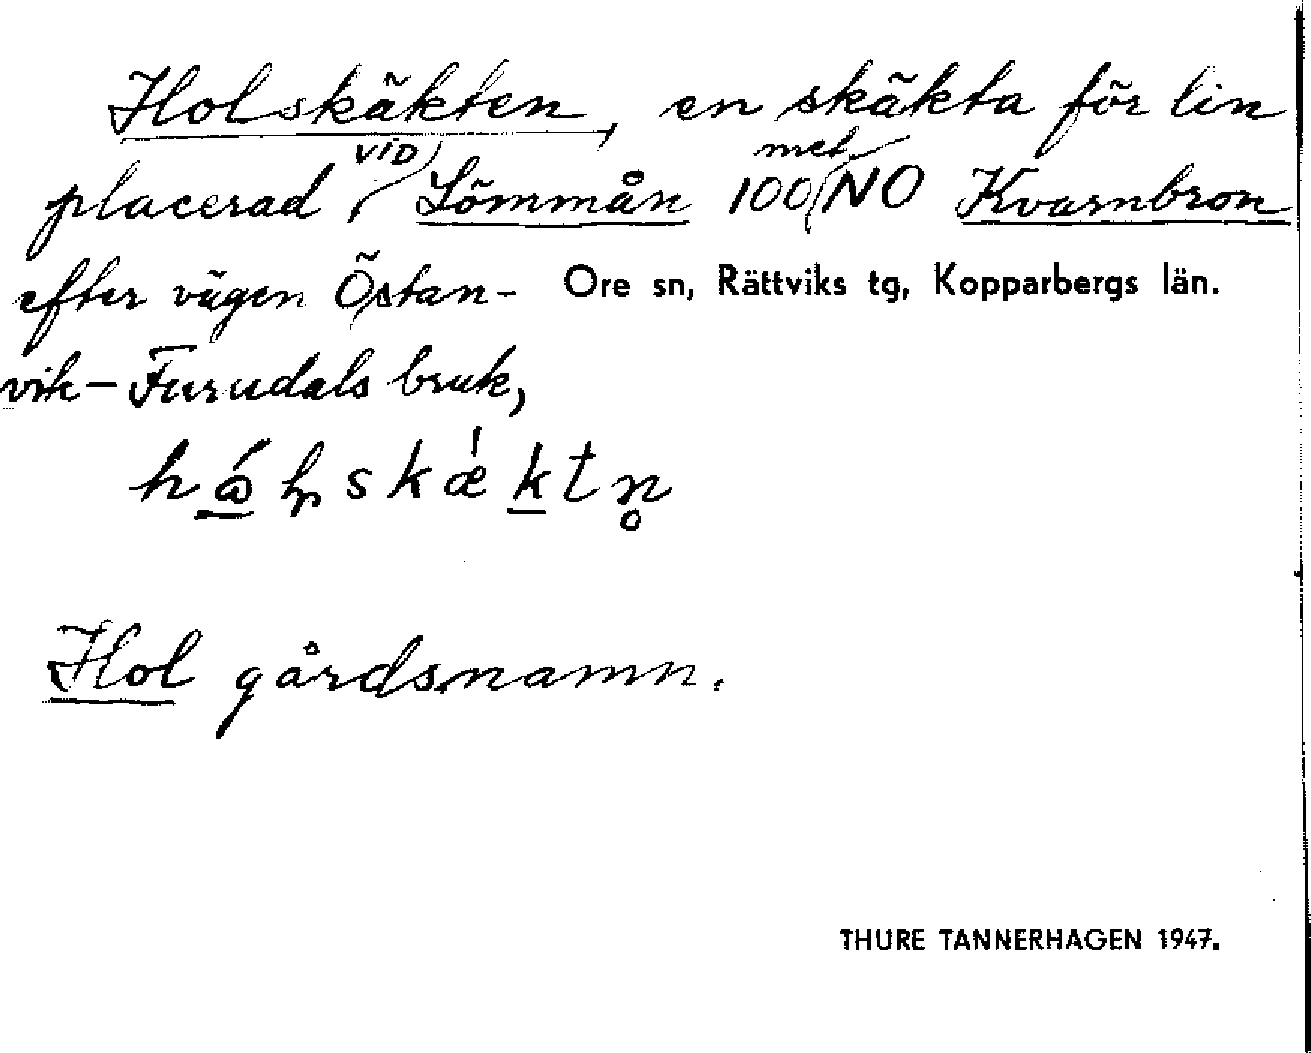 Holskäkten, en skäkta för lin
placerad vid Lömmån 100 met. NO Kvarnbron
efter vägen Östan-
Ore sn, Rättviks tg, Kopparbergs län.
vik-Furudals bruk,
Hol gårdsnamn.
THURE TANNERHAGEN 1947.